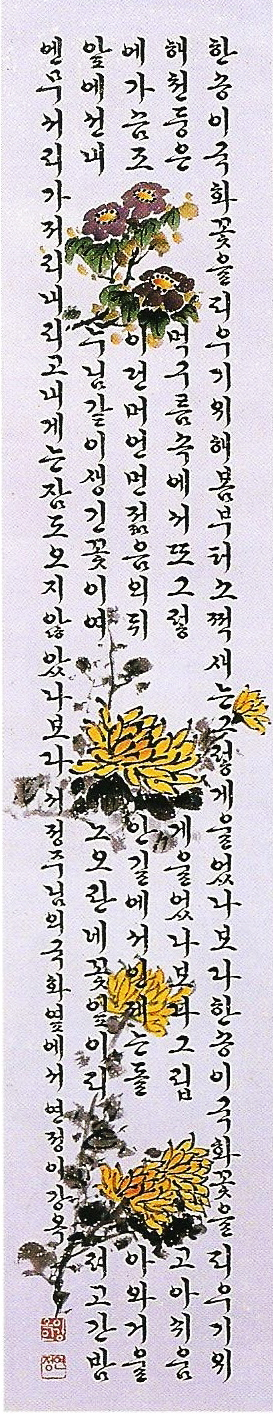 한송이국화꽃을피우기위해봄부터소쩍새는그렇게울었나보다한송이국화꽃을피우기위
해천둥은먹구름속에서또그렇게울었나보다그립고아쉬움
에가슴조이던머언먼젊음의뒤안길에서인제는돌아와거울
앞에선내누님같이생긴꽃이여노오란네꽃잎이피려고간밤
엔무서리가저리내리고내게는잠도오지않았나보다 서정주님의국화옆에서 연정이강옥
연정